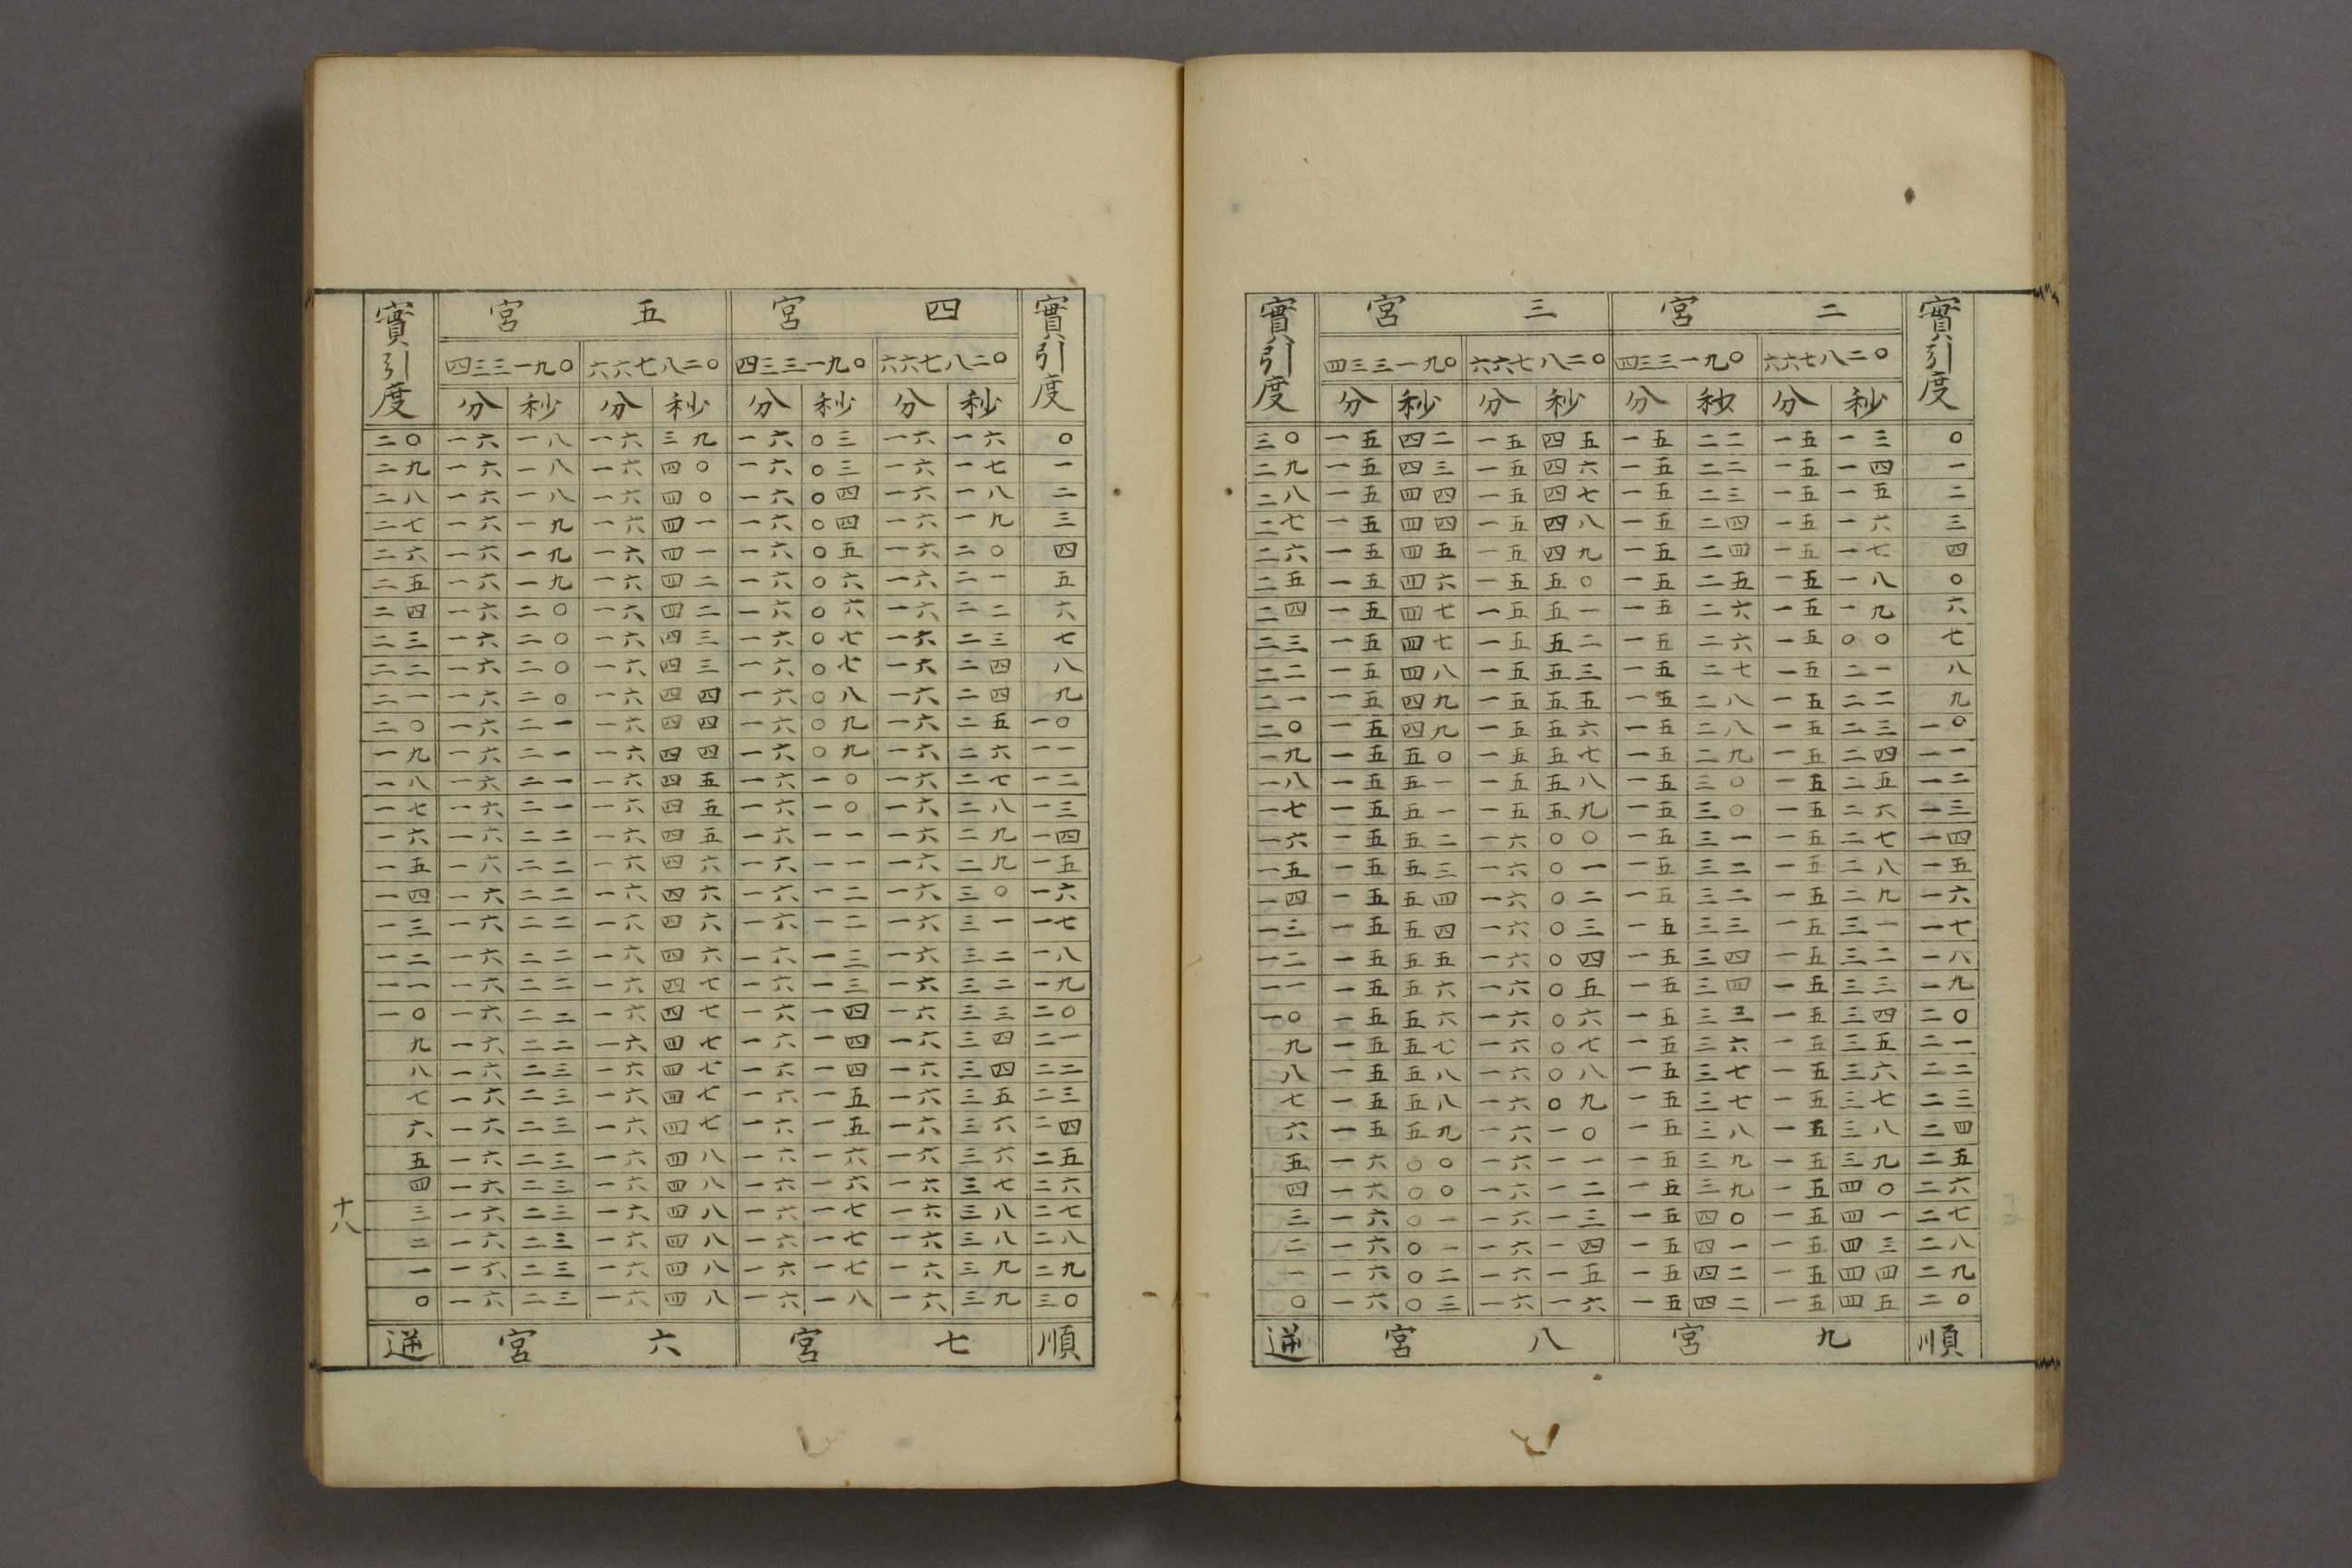 實引度 宮三 宮二 實引度
四三三一九〇 六六七八二〇 四三三一九〇 六六七八二〇
分 秒 分 秒 分 秒 分 秒
三〇 一五 四二 一五 四五 一五 二二 一五 一三 〇
二九 一五 四三 一五 四六 一五 二二 一五 一四 一
二八 一五 四四 一五 四七 一五 二三 一五 一五 二
二七 一五 四四 一五 四八 一五 二四 一五 一六 三
二六 一五 四五 一五 四九 一五 二四 一五 一七 四
二五 一五 四六 一五 五〇 一五 二五 一五 一八 〇
二四 一五 四七 一五 五一 一五 二六 一五 一九 六
二三 一五 四七 一五 五二 一五 二六 一五 〇〇 七
二二 一五 四八 一五 五三 一五 二七 一五 二一 八
二一 一五 四九 一五 五五 一五 二八 一五 二二 九
二〇 一五 四九 一五 五六 一五 二八 一五 二三 一〇
一九 一五 五〇 一五 五七 一五 二九 一五 二四 一一
一八 一五 五一 一五 五八 一五 三〇 一五 二五 一二
一七 一五 五一 一五 五九 一五 三〇 一五 二六 一三
一六 一五 五二 一六 〇〇 一五 三一 一五 二七 一四
一五 一五 五三 一六 〇一 一五 三二 一五 二八 一五
一四 一五 五四 一六 〇二 一五 三二 一五 二九 一六
一三 一五 五四 一六 〇三 一五 三三 一五 三一 一七
一二 一五 五五 一六 〇四 一五 三四 一五 三二 一八
一一 一五 五六 一六 〇五 一五 三四 一五 三三 一九
一〇 一五 五六 一六 〇六 一五 三三 一五 三四 二〇
九 一五 五七 一六 〇七 一五 三六 一五 三五 二一
八 一五 五八 一六 〇八 一五 三七 一五 三六 二二
七 一五 五八 一六 〇九 一五 三七 一五 三七 二三
六 一五 五九 一六 一〇 一五 三八 一五 三八 二四
五 一六 〇〇 一六 一一 一五 三九 一五 三九 二五
四 一六 〇〇 一六 一二 一五 三九 一五 四〇 二六
三 一六 〇一 一六 一三 一五 四〇 一五 四一 二七
二 一六 〇一 一六 一四 一五 四一 一五 四三 二八
一 一六 〇二 一六 一五 一五 四二 一五 四四 二九
〇 一六 〇三 一六 一六 一五 四二 一五 四五 二〇
逆 宮八 宮九 順
實引度 宮五 宮四 實引度
四三三一九〇 六六七八二〇 四三三一九〇 六六七八二〇
分 秒 分 秒 分 秒 分 秒
二〇 一六 一八 一六 三九 一六 〇三 一六 一六 〇
二九 一六 一八 一六 四〇 一六 〇三 一六 一七 一
二八 一六 一八 一六 四〇 一六 〇四 一六 一八 二
二七 一六 一九 一六 四一 一六 〇四 一六 一九 三
二六 一六 一九 一六 四一 一六 〇五 一六 二〇 四
二五 一六 一九 一六 四二 一六 〇六 一六 二一 五
二四 一六 二〇 一六 四二 一六 〇六 一六 二二 六
二三 一六 二〇 一六 四三 一六 〇七 一六 二三 七
二二 一六 二〇 一六 四三 一六 〇七 一六 二四 八
二一 一六 二〇 一六 四四 一六 〇八 一六 二四 九
二〇 一六 二一 一六 四四 一六 〇九 一六 二五 一〇
一九 一六 二一 一六 四四 一六 〇九 一六 二六 一一
一八 一六 二一 一六 四五 一六 一〇 一六 二七 一二
一七 一六 二一 一六 四五 一六 一〇 一六 二八 一三
一六 一六 二二 一六 四五 一六 一一 一六 二九 一四
一五 一六 二二 一六 四六 一六 一一 一六 二九 一五
一四 一六 二二 一六 四六 一六 一二 一六 三〇 一六
一三 一六 二二 一六 四六 一六 一二 一六 三一 一七
一二 一六 二二 一六 四六 一六 一三 一六 三二 一八
一一 一六 二二 一六 四七 一六 一三 一六 三二 一九
一〇 一六 二二 一六 四七 一六 一四 一六 三三 二〇
九 一六 二二 一六 四七 一六 一四 一六 三四 二一
八 一六 二三 一六 四七 一六 一四 一六 三四 二二
七 一六 二三 一六 四七 一六 一五 一六 三五 二三
六 一六 二三 一六 四七 一六 一五 一六 三六 二四
五 一六 二三 一六 四八 一六 一六 一六 三六 二五
四 一六 二三 一六 四八 一六 一六 一六 三七 二六
三 一六 二三 一六 四八 一六 一七 一六 三八 二七
二 一六 二三 一六 四八 一六 一七 一六 三八 二八
一 一六 二三 一六 四八 一六 一七 一六 三九 二九
〇 一六 二三 一六 四八 一六 一八 一六 三九 三〇
逆 宮六 宮七 順
十八